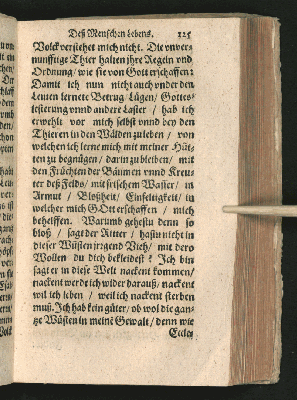 Deß Menschen Lebens. 125
Volck verstehet mich nicht. Die unver-
nunfftige Thier halten jhre Regeln vnd
Ordnung / wie sie von Gott erschaffen:
Damit ich nun nicht auch vnder den
Leuten lernete Betrug / Lügen / Gottes-
lästerung vnnd andere Laster / hab ich
erwehlt vor mich selbst vnnd bey den
Thieren in den Wälden zu leben / von
welchen ich lerne mich mit meiner Hüt-
ten zu begnügen / darin zu bleiben / mit
den Früchten der Bäumen vnnd Kreut
ter deß Felds / mit frischem Wasser / in
Armut / Bloßheit / Einfeltigkeit / in
welcher mich Gott erschaffen / mich
behelffen. Warumb gehestu denn so
bloß / sagt der Ritter / hastu nicht in
dieser Wüsten jrgend Vieh / mit dero
Wollen du dich bekleidest? Ich bin
sagt er in diese Welt nackent kommen /
nackent werde ich wider darauß / nackent
wil ich leben / weil ich nackent sterben
muß. Ich hab kein güter / ob wol die gan-
tze Wüsten in meinē Gewalt / denn wie